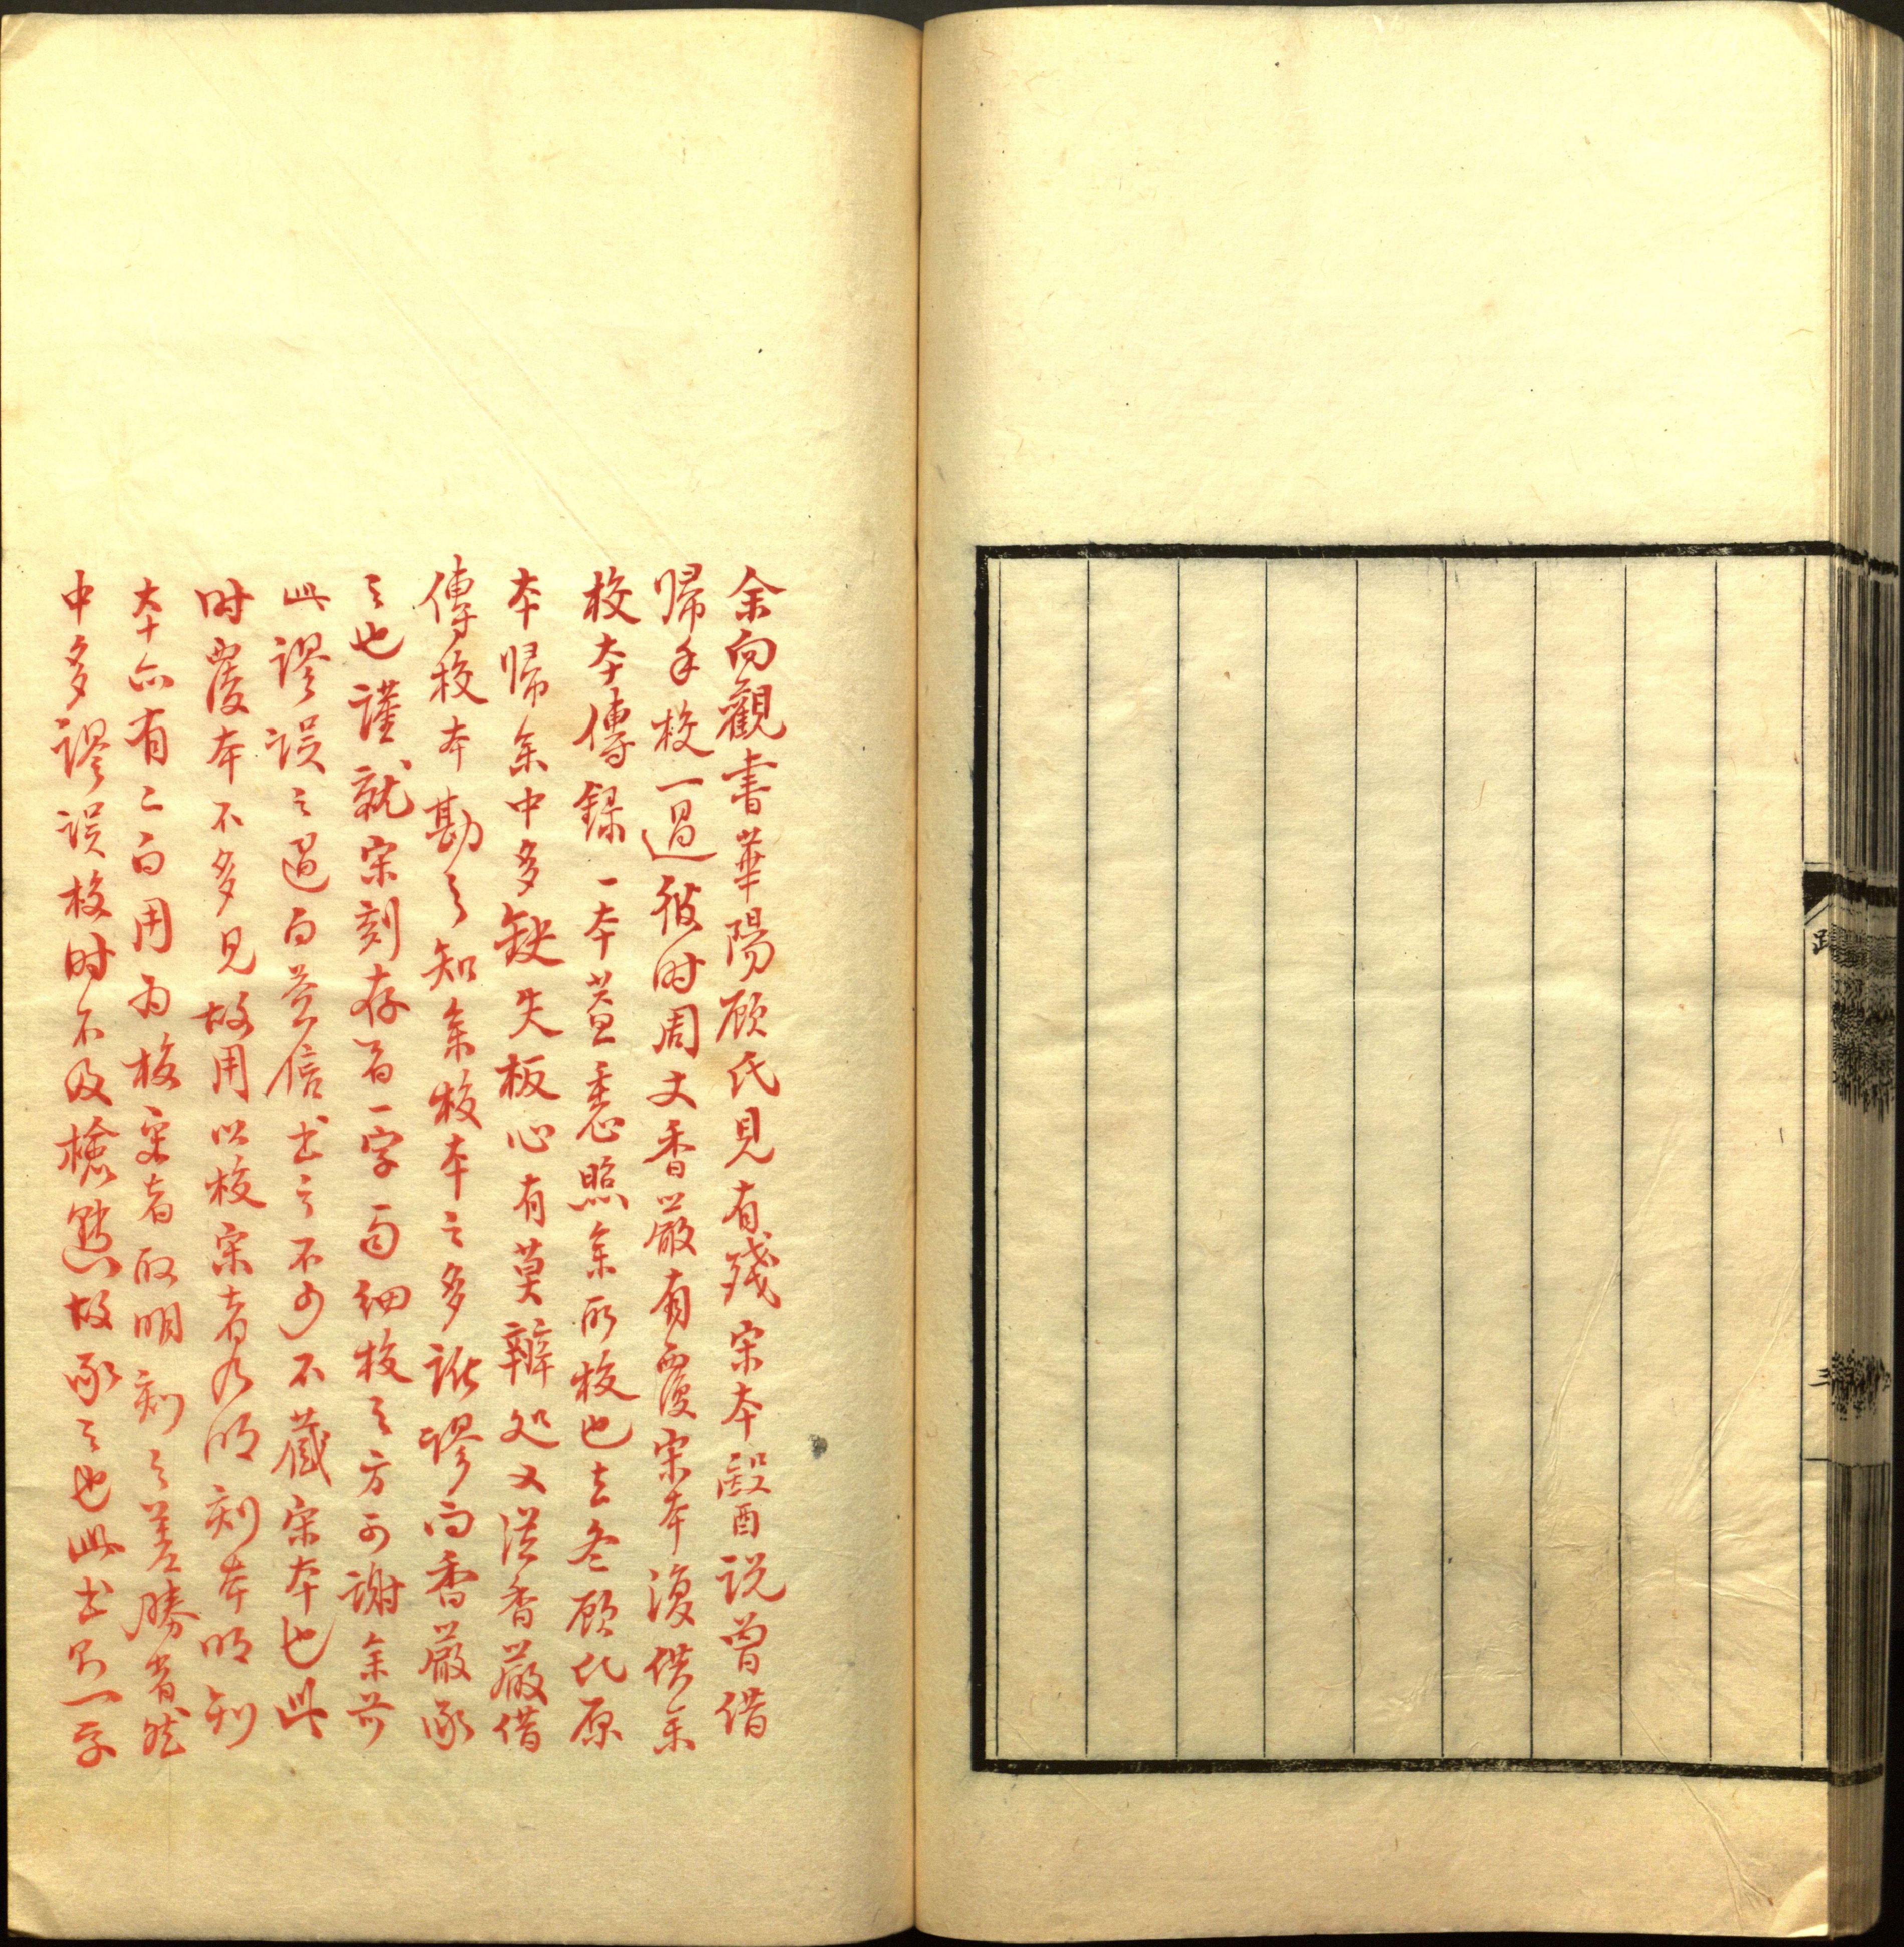 三
余向觀書華陽顧氏見有殘宋本毉説曾借
歸手校一過彼时周丈香嚴有覆宋本復借余
校本傳錄一本葢悉照余所校也去冬顧氏原
本歸余中多缺失板心有莫辨処又從香嚴借
傳校本勘之知余校本之多訛謬而香嚴承
之也謹就宋刻存者一字句細校之方可謝余前
此謬误之過而益信书之不可不藏宋本也此
时覆本不多見故用以校宋者乃明刻本明刻
本亦有二而用為校宋者取明刻之差勝者然
中多謬误校时不及檢點故承之也此书一字